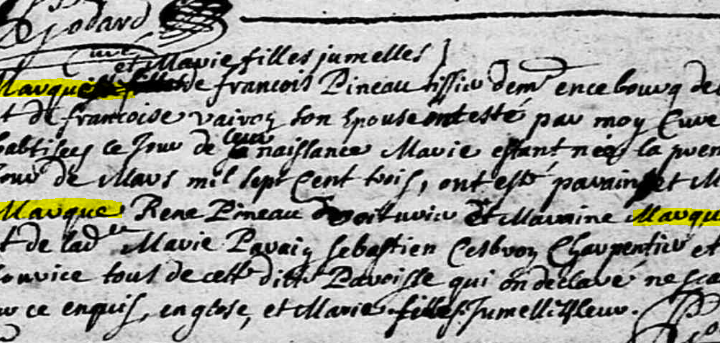 Godard
Curé
et Marie filles jumelles
de francois Pineau tissier demt en ce bourg de
t de francoise vairon son epouse ont esté par moy Curé
baptisees ce Jour de leur naissance Marie estant née la prem
Jour de Mars mil sept Cent trois, ont esté parain et M
Marque Rene Pineau et Maraine Marque
t de lad Marie Pavain Sebastien Cesbron Charpentier et
tous de cette ditte Paroisse qui ont declaré ne sca
ce enquis, en glose, et Marie filles Jumelles leur.